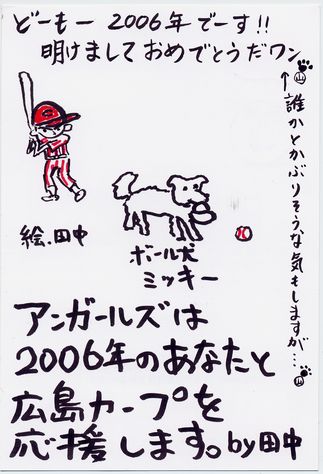 どーもー 2006年でーす!!
明けましておめでとうだワン
山
↑誰かとかぶりそうな気もしますが…
山
C
絵.田中
ボール犬
ミッキー
アンガールズは
2006年のあなたと
広島カープを
応援します。by田中